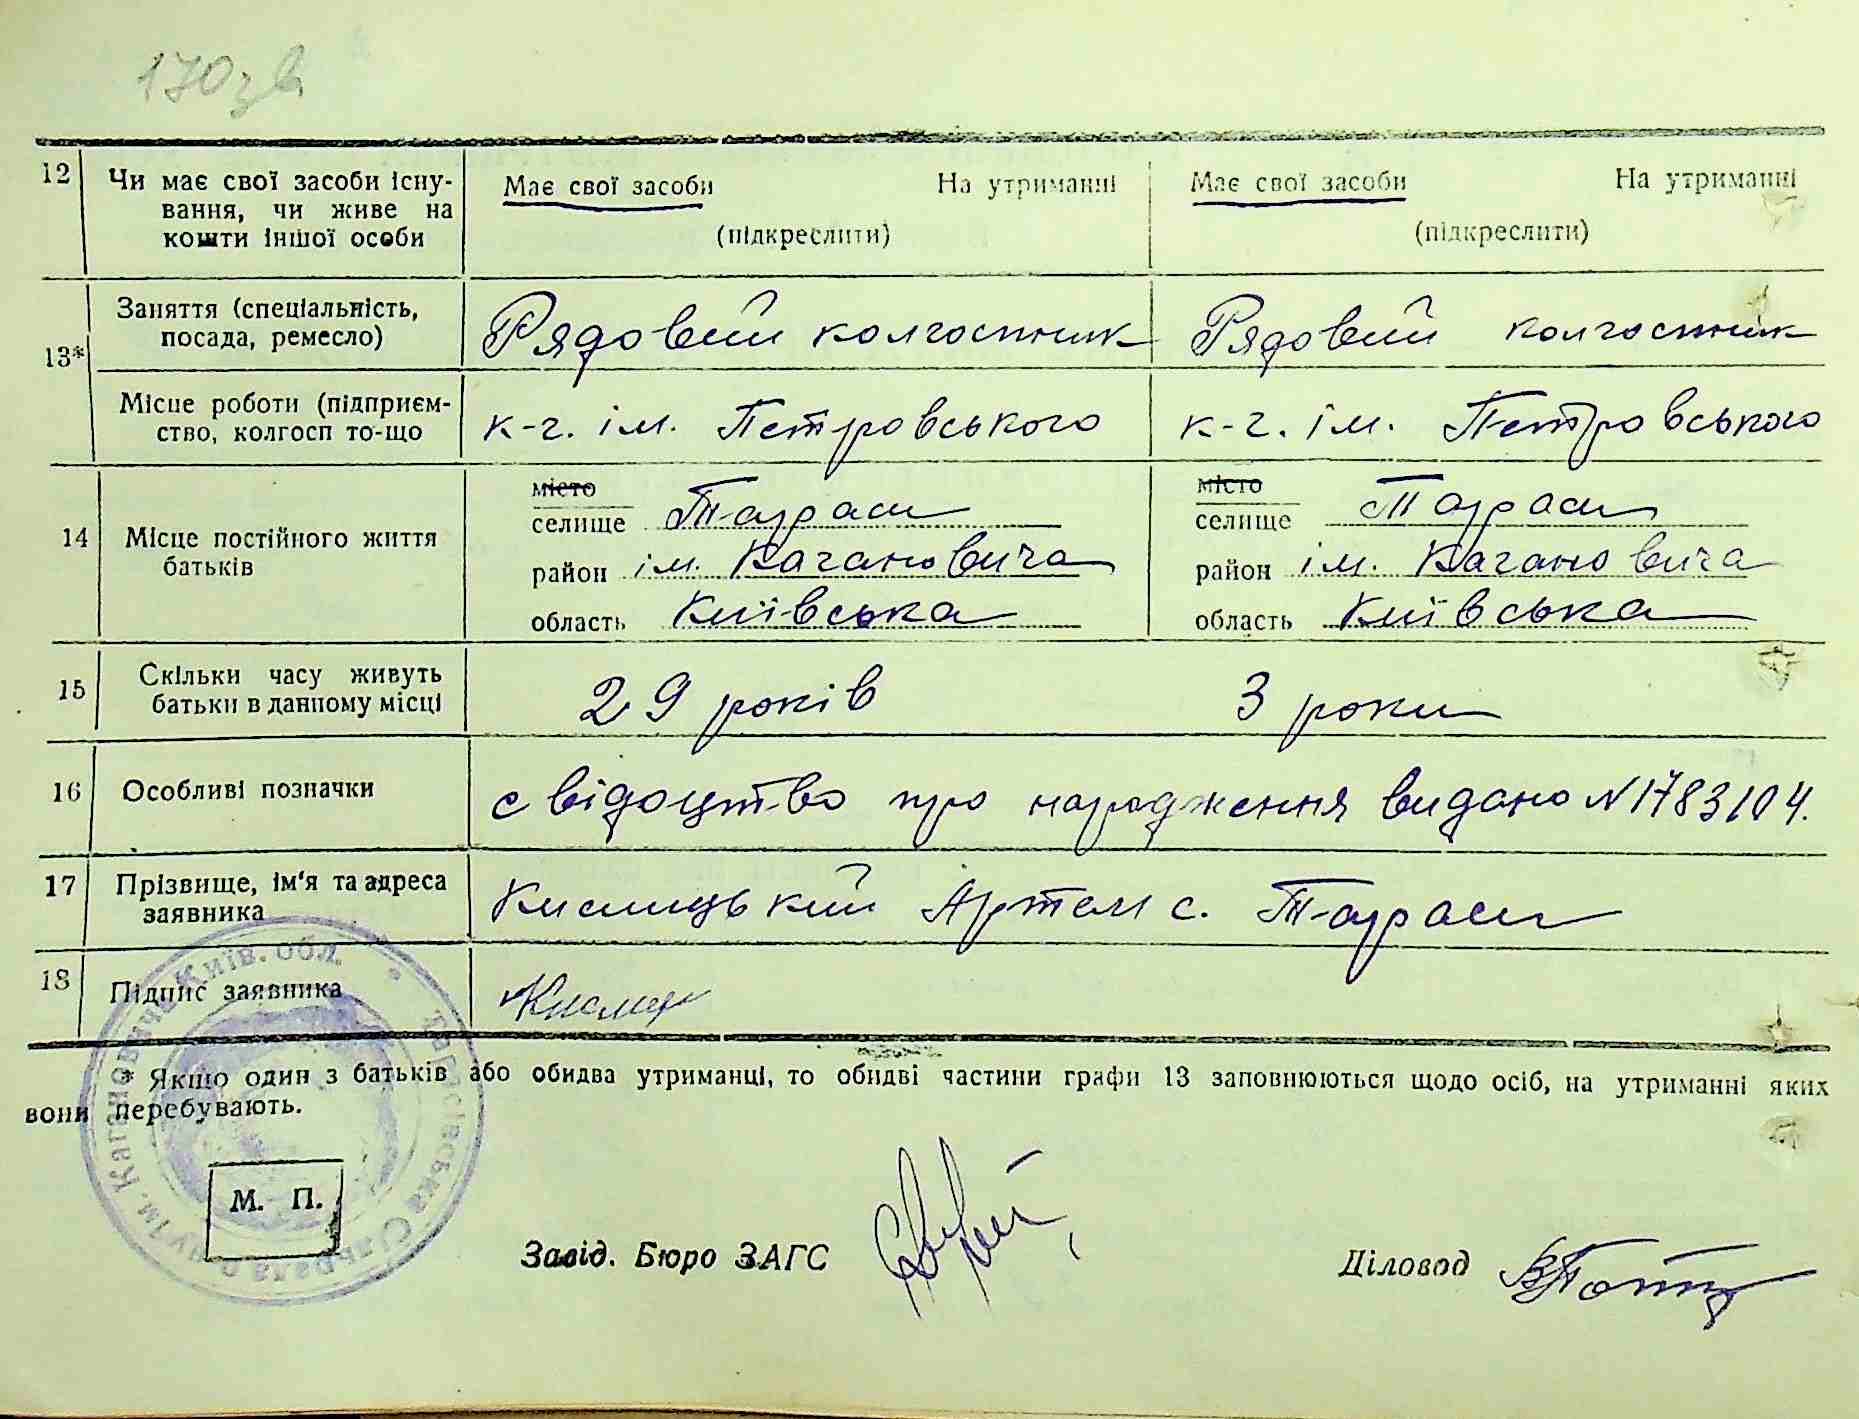 170зв
12 Чи має свої засоби існу-
вання, чи живе на
кошти іншої особи
Має свої засоби На утриманні
(підкреслити)
Має свої засоби На утриманні
(підкреслити)
13*
Заняття (спеціальність,
посада, ремесло)
Рядовий колгоспник
Рядовий колгоспник
Місце роботи (підприєм-
ство, колгосп то-що
к-г. ім. Петровського
к-г. ім. Петровського
14 Місце постійного життя
батьків
місто
селище Тараси
район ім. Кагановича
область Київська
місто
селище Тараси
район ім. Кагановича
область Київська
15 Скільки часу живуть
батьки в данному місці
29 років
3 роки
16 Особливі позначки
свідоцтво про народження видано N1783104.
17 Прізвище, ім'я та адреса
заявника
Кислицький Артем с. Тараси
18 Підпис заявника
Кислиц
* Якщо один з батьків або обидва утриманці, то обидві частини графи 13 заповнюються щодо осіб, на утриманні яких
вони перебувають.
Тарасівська Сільрада р-ну ім. Кагановича Київ. обл.
М. П.
Завід. Бюро ЗАГС
Діловод